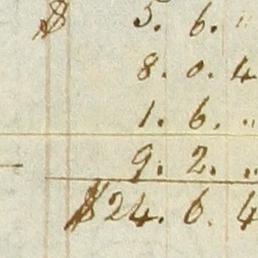 $ 5. 6. "
8. 0. 4
1. 6. "
9. 2. "
$24. 6. 4